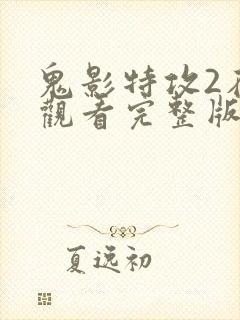 鬼影特攻2
觀看完整版
夏逸初